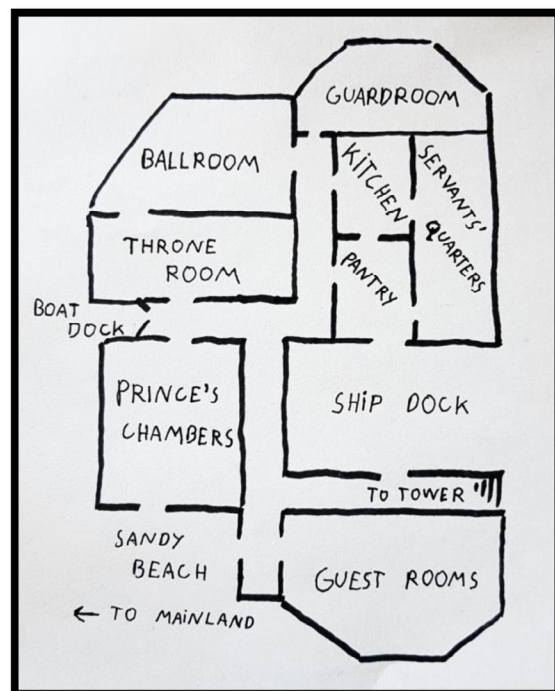 GUARDROOM
BALLROOM
KITCHEN
SERVANTS'
QUARTERS
THRONE
ROOM
PANTRY
BOAT
DOCK
PRINCE'S
CHAMBERS
SHIP DOCK
TO TOWER
SANDY
BEACH
GUEST ROOMS
← TO MAINLAND